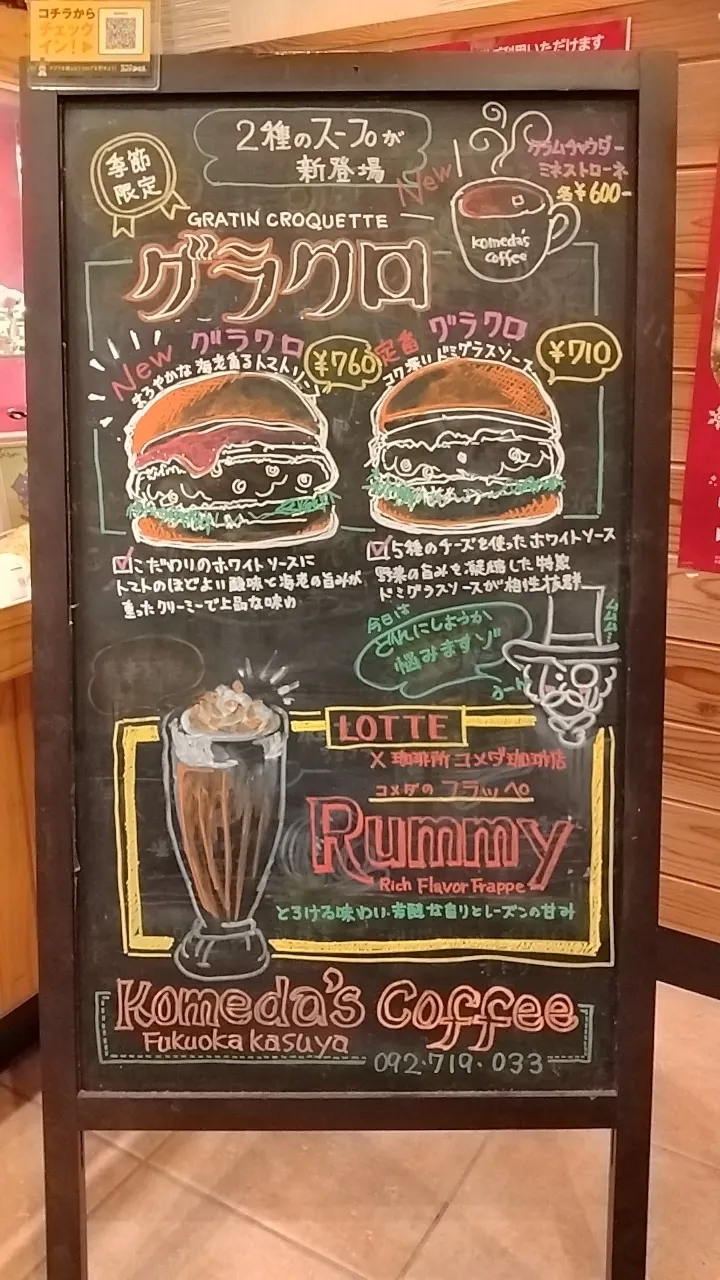 コチラから
チェック
イン!▶
ご利用いただけます
季節
限定
2種のスープが
新登場
New
クラムチャウダー
ミネストローネ
各¥600-
komeda's
coffee
GRATIN CROQUETTE
グラクロ
New グラクロ
¥760
まろやかな 海老香るトマトソース
定番 グラクロ
¥710
コク深いドミグラスソース
こだわりのホワイトソースに
トマトのほどよい酸味と海老の旨みが
重なったクリーミーで上品な味わい
5種のチーズを使ったホワイトソース
野菜の旨みを凝縮した特製
ドミグラスソースが相性抜群
今日は
どれにしようか
悩みますゾ
LOTTE
X 珈琲所 コメダ珈琲店
コメダの フラッペ
Rummy
Rich Flavor Frappe
とろける味わい・芳醇な香りとレーズンの甘み
Komeda's Coffee
Fukuoka kasuya
092・719・033